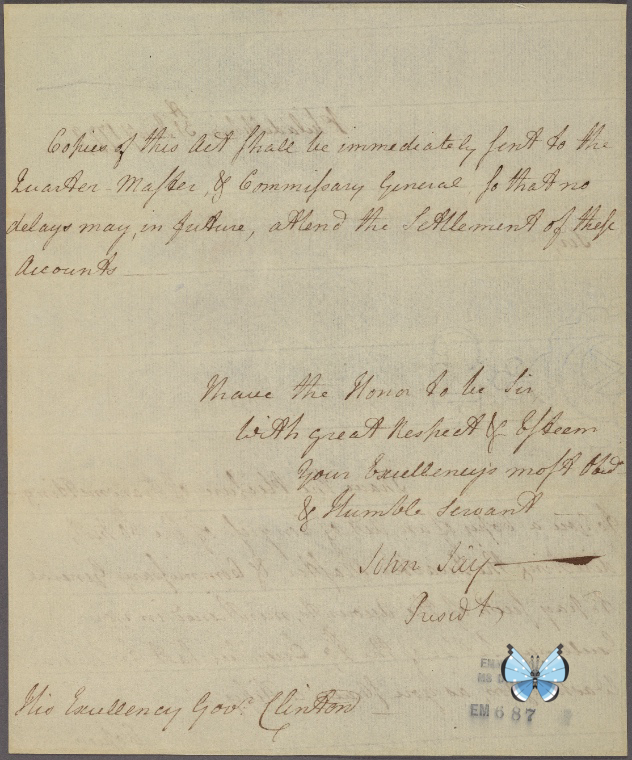 Copies of this Act shall be immediately sent to the
Quarter-Master, & Commissary General so that no
delays may, in future, attend the Settlement of these
Accounts
I have the Honor to be Sir
With great Respect & Esteem
Your Excellencys most Obed
& Humble Servant
John Jay
Presidt
His Excellency Govr. Clinton
EM 687